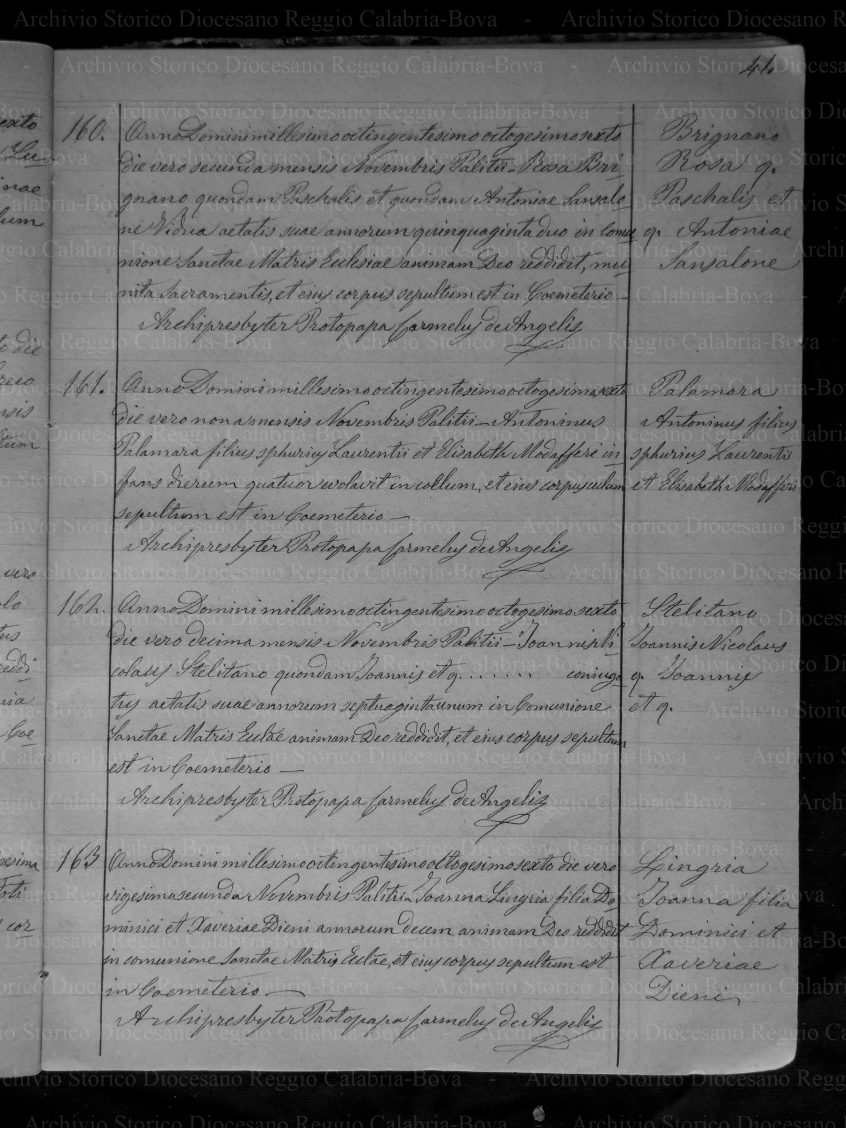 Archivio Storico Diocesano Reggio Calabria-Bova - Archivio Storico Diocesano R
41.
160. Anno Domini millesimo octingentesimo octogesimo sexto
die vero secunda mensis Novembris Palitii - Rosa Bri
gnano quondam Paschalis et quondam Antoniae Sansalo
ne Vidua aetatis suae annorum quinquaginta duo in Comu
nione Sanctae Matris Ecclesiae animam Deo reddidit, mu
nita Sacramentis, et eius corpus sepultum est in Coemeterio -
Archipresbyter Protopapa Carmelus de Angelis
Brignano
Rosa q.
Paschalis et
q. Antoniae
Sansalone
161. Anno Domini millesimo octingentesimo octogesimo sexto
die vero nona mensis Novembris Palitii - Antoninus
Palamara filius sphurius Laurentii et Elisabeth Modafferi in
fans dierum quatuor evolavit in coelum, et eius corpusculum
sepultum est in Coemeterio -
Archipresbyter Protopapa Carmelus de Angelis
Palamara
Antoninus filius
sphurius Laurentii
et Elisabeth Modafferi
162. Anno Domini millesimo octingentesimo octogesimo sexto
die vero decima mensis Novembris Palitii - Joannis Ni
colaus Stelitano quondam Joannis et q. ....... coniuga
tus aetatis suae annorum septuaginta unum in Comunione
Sanctae Matris Ecclae animam Deo reddidit, et eius corpus sepultum
est in Coemeterio -
Archipresbyter Protopapa Carmelus de Angelis
Stelitano
Joannis Nicolaus
q. Joannis
et q.
163 Anno Domini millesimo octingentesimo octogesimo sexto die vero
vigesima secunda Novembris Palitii - Joanna Lingria filia Do
minici et Xaveriae Dieni annorum decem animam Deo reddidit
in comunione Sanctae Matris Ecclae, et eius corpus sepultum est
in Coemeterio -
Archipresbyter Protopapa Carmelus de Angelis
Lingria
Joanna filia
Dominici et
Xaveriae
Dieni